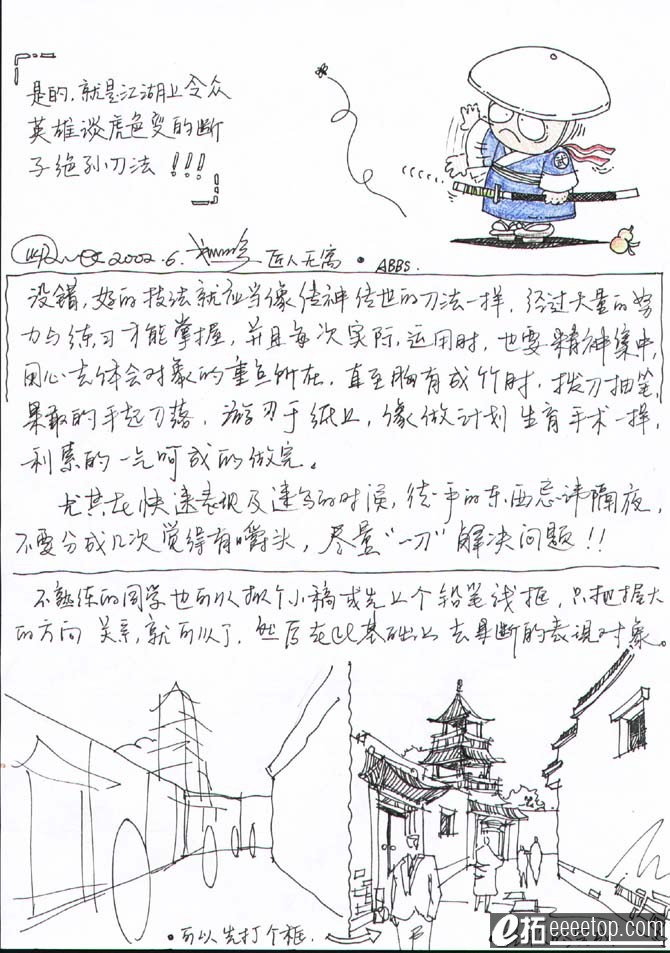 是的,就是江湖上令众
英雄谈虎色变的断
子绝孙刀法!!!
2002.6. 匠人无寓·ABBS.
没错,好的技法就应当像传神传世的刀法一样,经过大量的努
力与练习才能掌握,并且每次实际运用时,也要精神集中,
用心去体会对象的重点所在,直至胸有成竹时,拔刀抽笔,
果敢的手起刀落,游刃于纸上,像做计划生育手术一样,
利索的一气呵成的做完。
尤其在快速表现及速写的时候,徒手的东西忌讳隔夜,
不要分成几次觉得有嚼头,尽量"一刀"解决问题!!
不熟练的同学也可以做个小稿或先上个铅笔线框,只把握大
的方向关系,就可以了,然后在此基础上去果断的表现对象。
·可以先打个框.
e拓 eeeetop.com